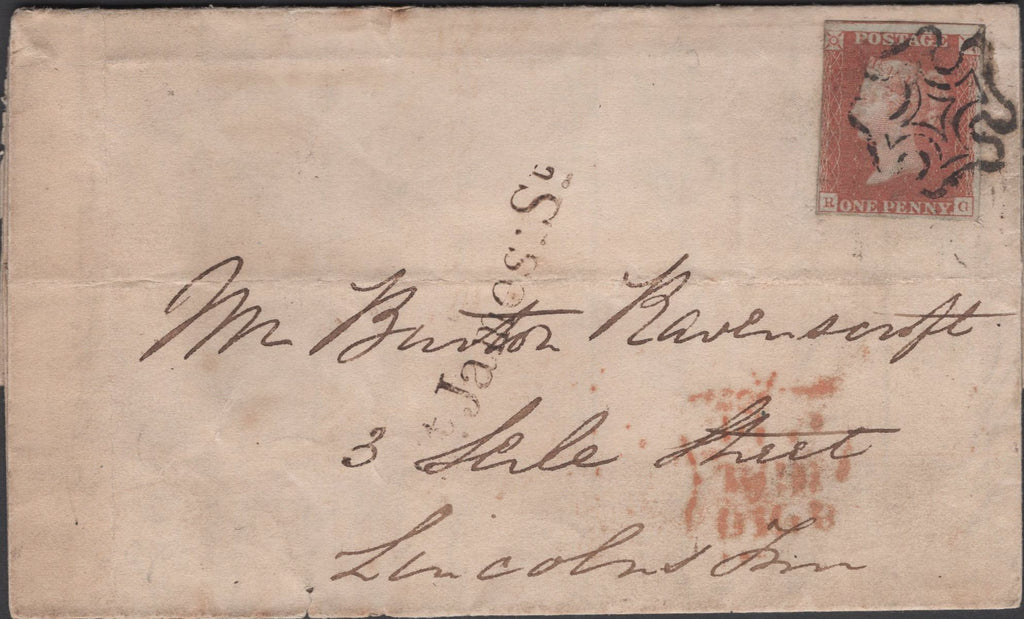 POSTAGE
R ONE PENNY G
St James: St
Mr Burton Ravenscroft
3 Serle Street
Lincolns Inn